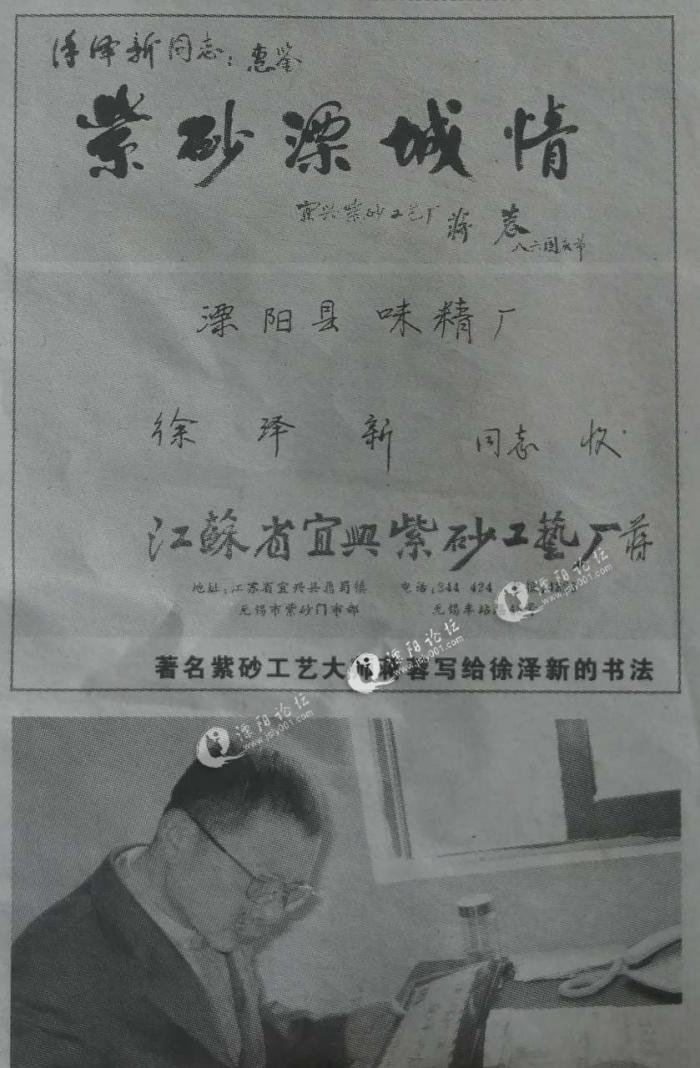 徐泽新同志：惠鉴
紫砂溧城情
宜兴紫砂工艺厂 蒋蓉
八六国庆节
溧阳县味精厂
徐泽新 同志 收
江蘇省宜興紫砂工藝厂 蒋
地址:江苏省宜兴县鼎蜀镇 电话:344 424
无锡市紫砂门市部 无锡车站
溧阳论坛
www.jsly001.com
著名紫砂工艺大师蒋蓉写给徐泽新的书法
溧阳论坛
www.jsly001.com
溧阳论坛
www.jsly001.com